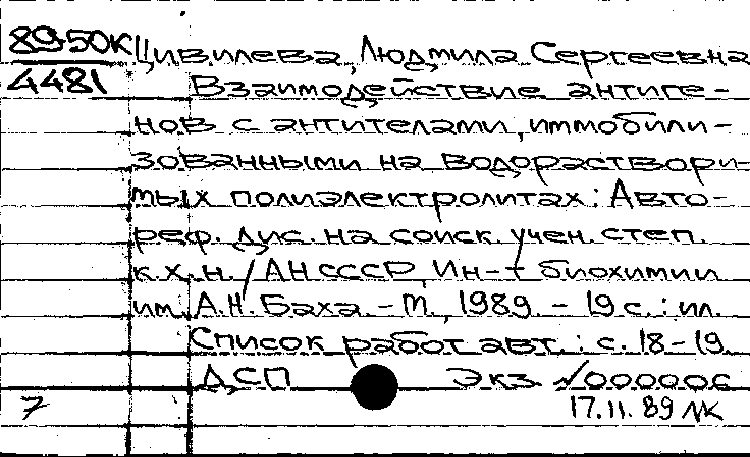 89-50К Цивилева, Людмила Сергеевна
4481 Взаимодействие антиге-
нов с антителами, иммобили-
зованными на водораствори-
мых полиэлектролитах: Авто-
реф. дис. на соиск. учен. степ.
к.х.н. / АН СССР, Ин-т биохимии
им. А.Н. Баха. - М., 1989. - 19 с.: ил.
Список работ авт.: с. 18-19.
ДСП Экз. №000006
7 17.11.89 МК